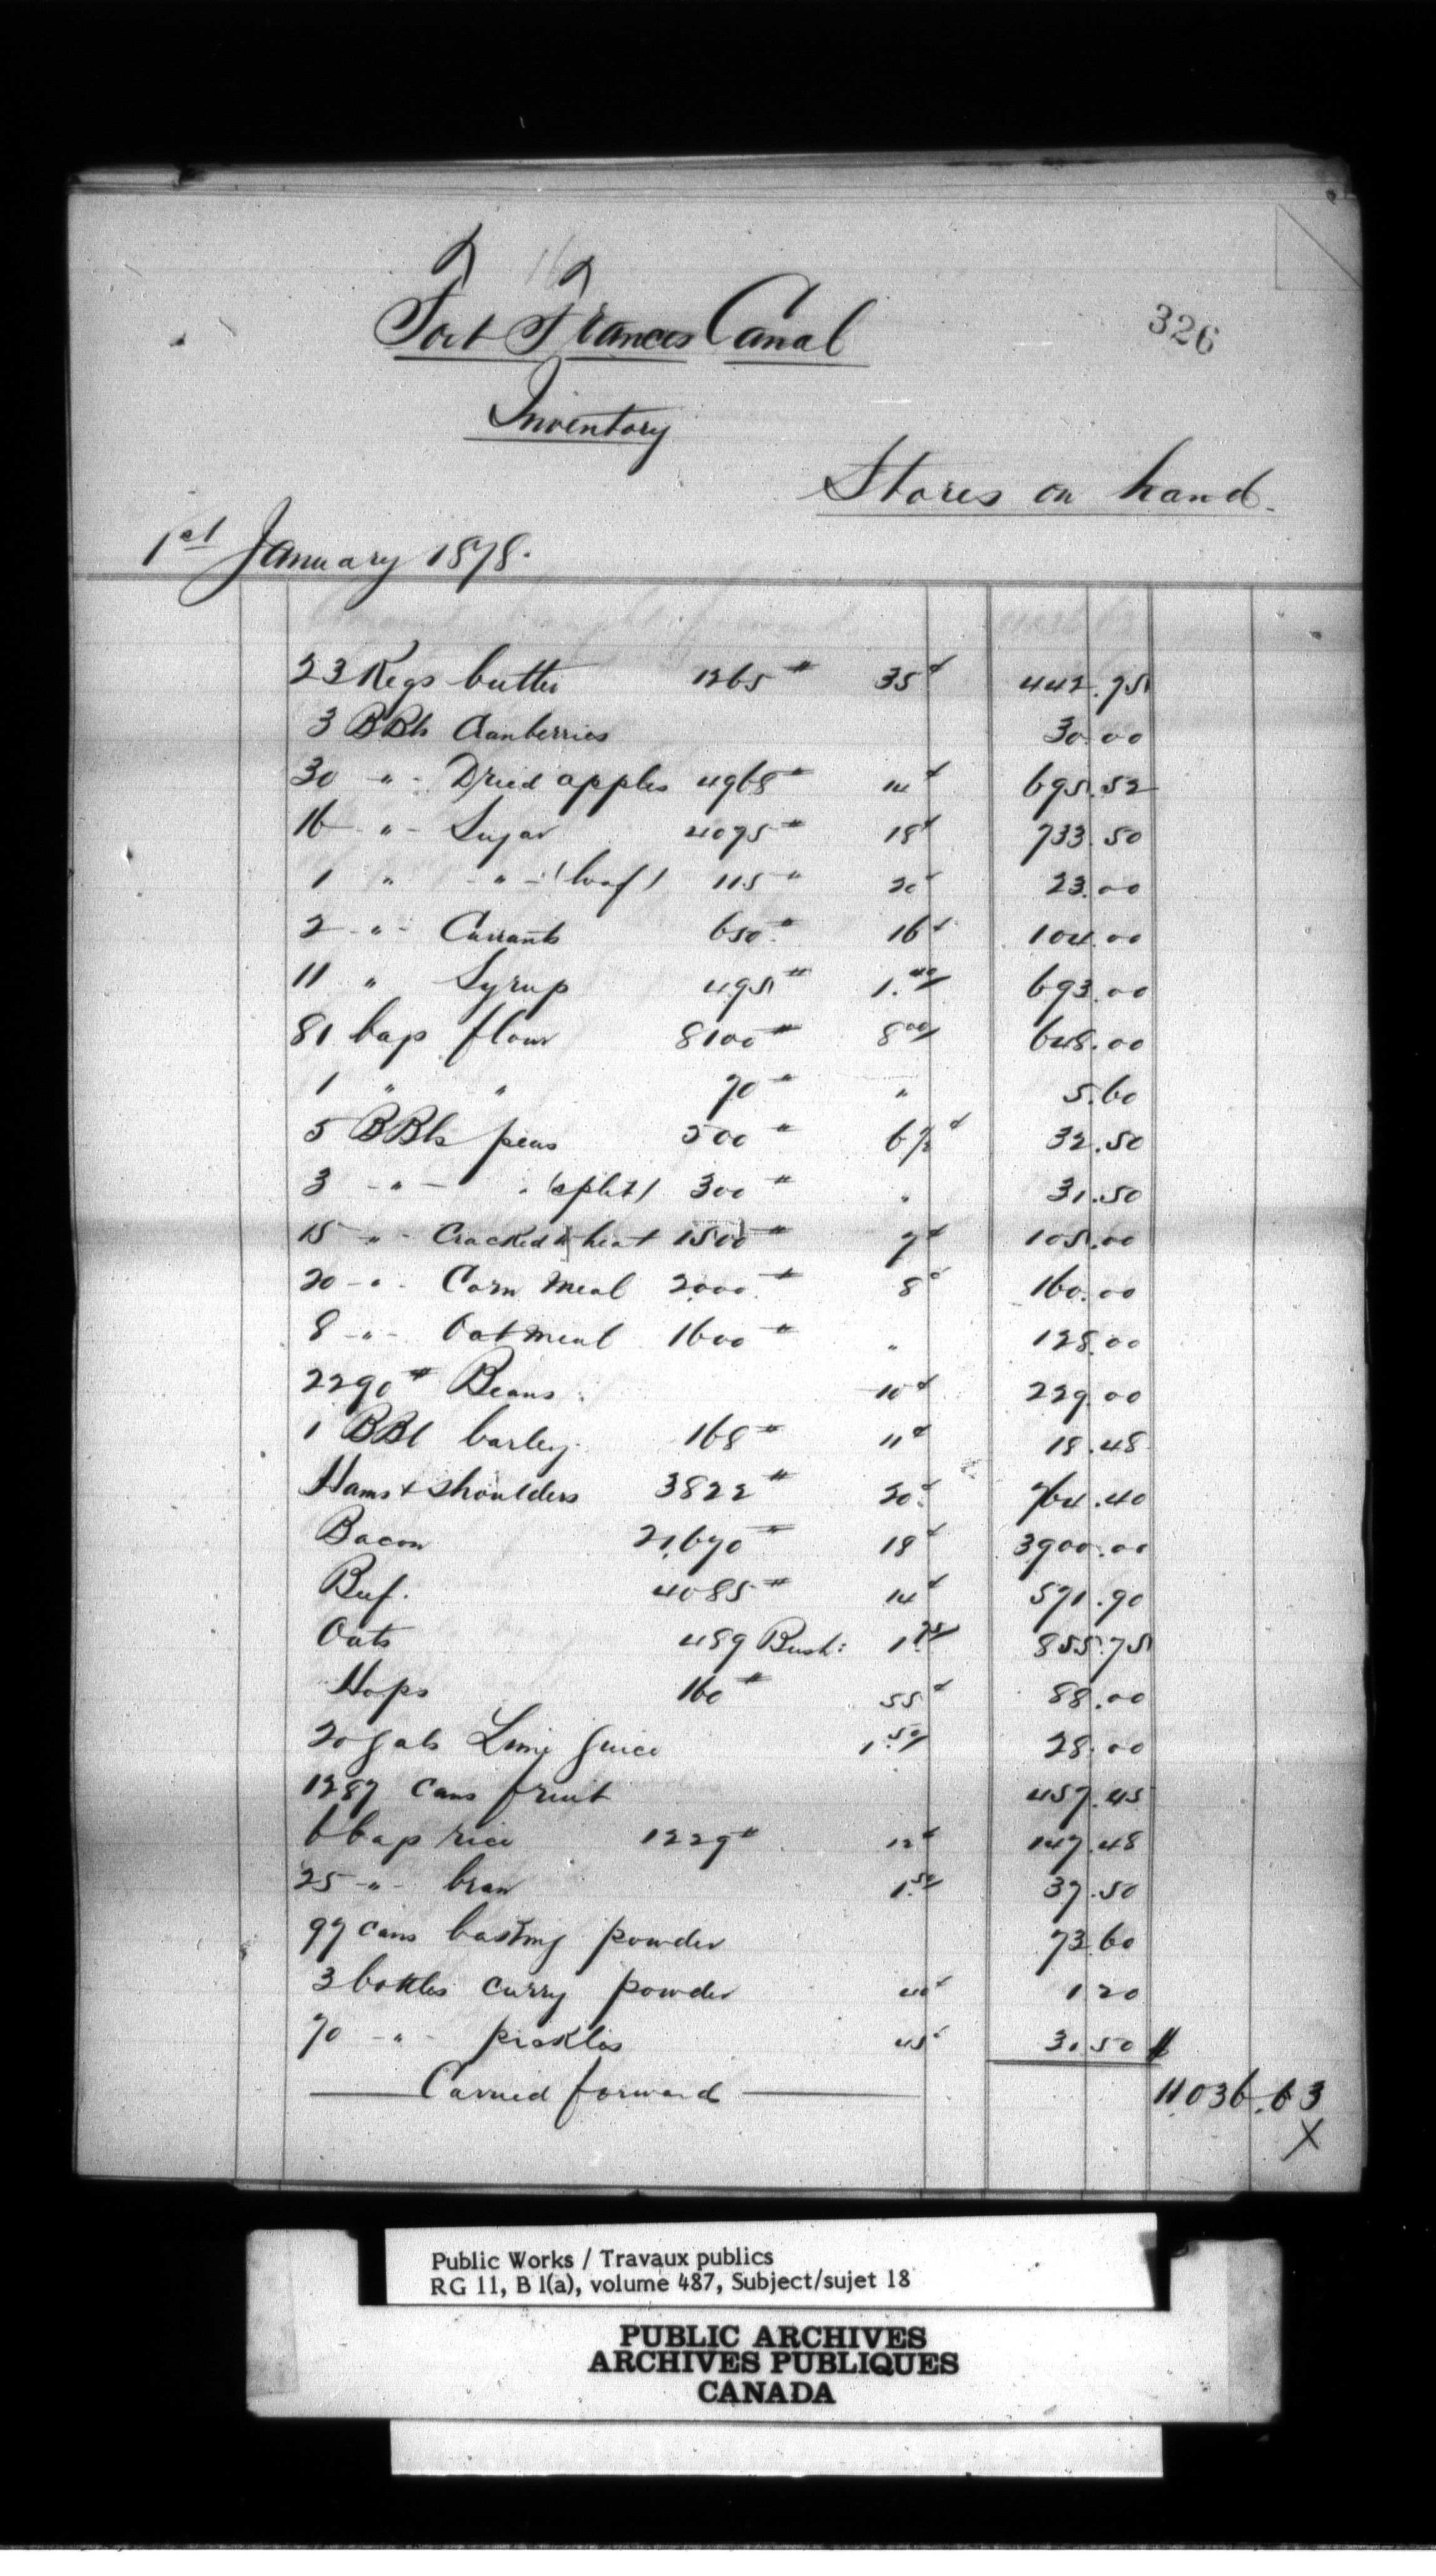 326
Fort Frances Canal
Inventory
Stores on hand.
1st January 1878.
23 Kegs butter 1265 # 35¢ 442.75
3 BBls Cranberries 30.00
30 -"- Dried apples 4968 # 14¢ 695.52
16 -"- Sugar 4075 # 18¢ 733.50
1 " -"- (loaf) 115 " 20¢ 23.00
2 -"- Currants 650 # 16¢ 104.00
11 " Syrup 495 # 1.40 693.00
81 bags flour 8100 # 8.00 648.00
1 " " 70 # " 5.60
5 BBls peas 500 # 6½¢ 32.50
3 -"- " (split) 300 # " 31.50
15 -"- Cracked wheat 1500 # 7¢ 105.00
20 -"- Corn Meal 2000 # 8¢ 160.00
8 -"- Oatmeal 1600 # " 128.00
2290 # Beans 10¢ 229.00
1 BBl barley 168 # 11¢ 18.48
Hams + shoulders 3822 # 20¢ 764.40
Bacon 21,670 # 18¢ 3900.00
Beef. 4085 # 14¢ 571.90
Oats 489 Bush: 1.75 855.75
Hops 160 # 55¢ 88.00
20 gals Lime juice 1.50 28.00
1287 cans fruit 457.45
6 bags rice 1229 # 12¢ 147.48
25 -"- bran 1.50 37.50
97 cans baking powder 73.60
3 bottles curry powder 40¢ 1.20
70 -"- pickles 45¢ 31.50
Carried forward 11036.63
X
Public Works / Travaux publics
RG 11, B 1(a), volume 487, Subject/sujet 18
PUBLIC ARCHIVES
ARCHIVES PUBLIQUES
CANADA